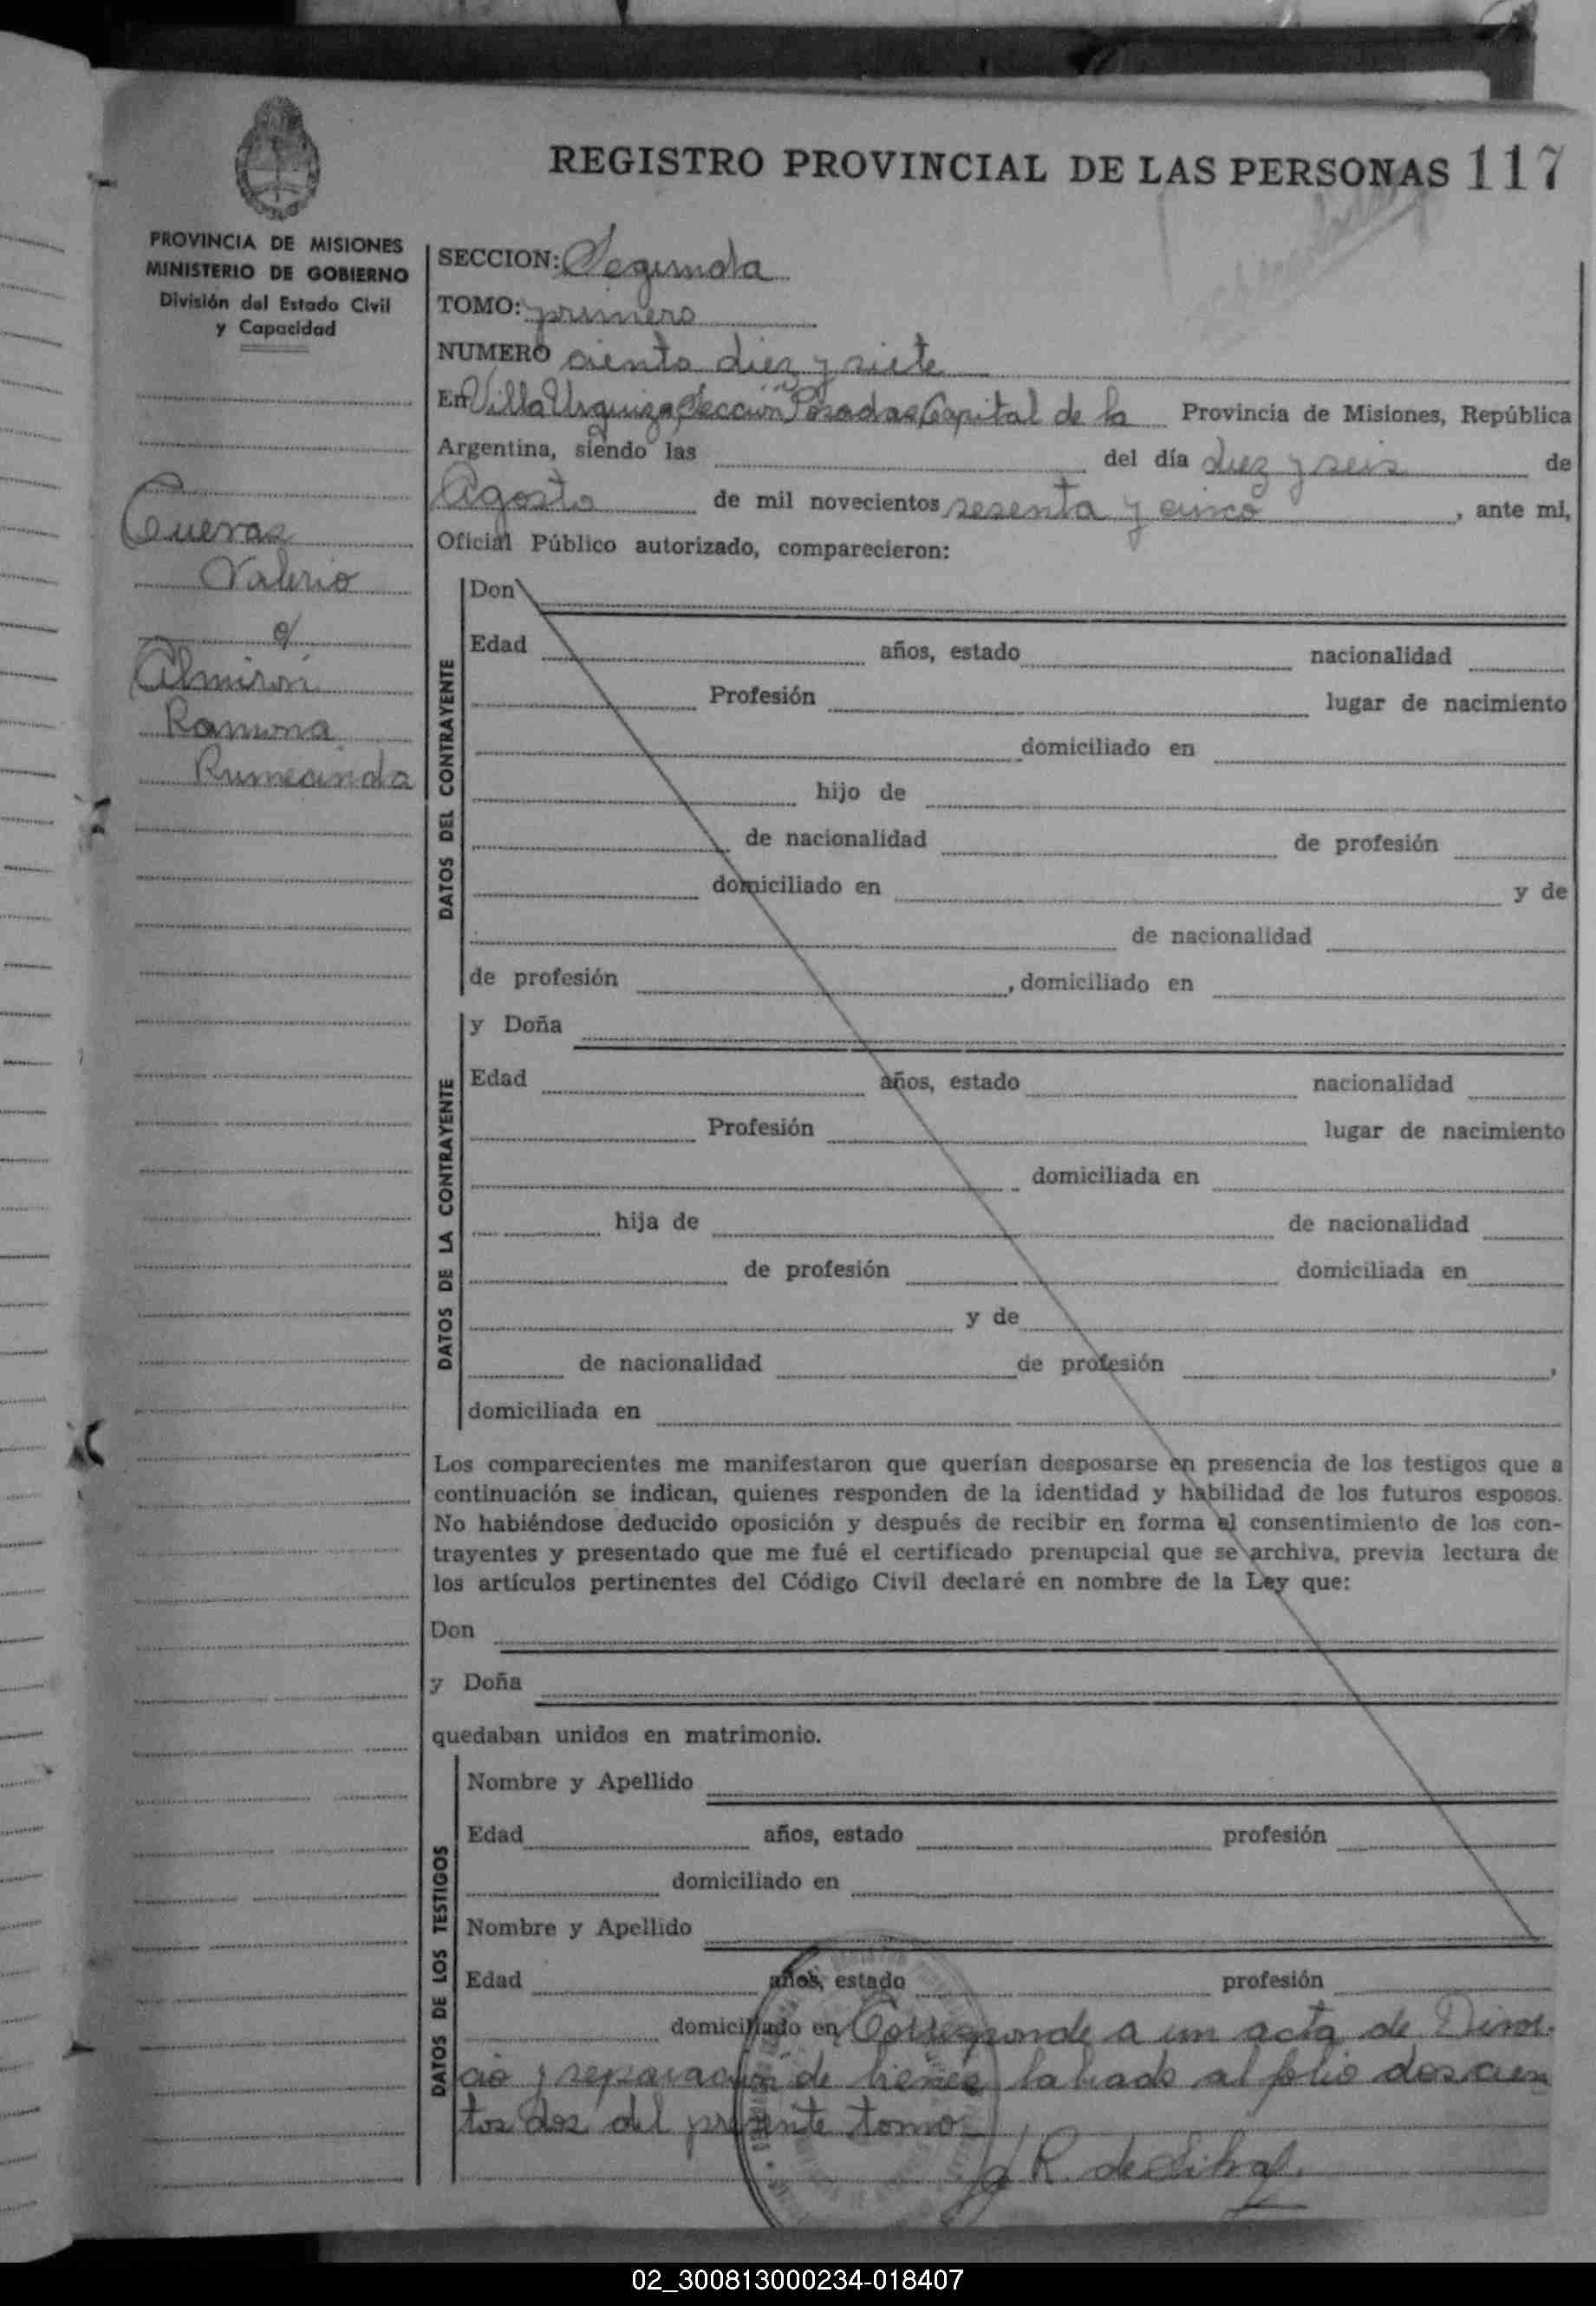 REGISTRO PROVINCIAL DE LAS PERSONAS 117
PROVINCIA DE MISIONES
MINISTERIO DE GOBIERNO
División del Estado Civil
y Capacidad
SECCION: Segunda
TOMO: primero
NUMERO ciento diez y siete
En Villa Urquiza, Sección Posadas, Capital de la Provincia de Misiones, República
Argentina, siendo las del día diez y seis de
Agosto de mil novecientos sesenta y cinco, ante mi,
Oficial Público autorizado, comparecieron:
Cuevas
Valerio
c/
Almirón
Ramona
Rumecinda
DATOS DEL CONTRAYENTE
Don
Edad años, estado nacionalidad
Profesión lugar de nacimiento
domiciliado en
hijo de
de nacionalidad de profesión
domiciliado en y de
de nacionalidad
de profesión , domiciliado en
DATOS DE LA CONTRAYENTE
y Doña
Edad años, estado nacionalidad
Profesión lugar de nacimiento
domiciliada en
hija de de nacionalidad
de profesión domiciliada en
y de
de nacionalidad de profesión ,
domiciliada en
Los comparecientes me manifestaron que querían desposarse en presencia de los testigos que a
continuación se indican, quienes responden de la identidad y habilidad de los futuros esposos.
No habiéndose deducido oposición y después de recibir en forma el consentimiento de los con-
trayentes y presentado que me fué el certificado prenupcial que se archiva, previa lectura de
los artículos pertinentes del Código Civil declaré en nombre de la Ley que:
Don
y Doña
quedaban unidos en matrimonio.
DATOS DE LOS TESTIGOS
Nombre y Apellido
Edad años, estado profesión
domiciliado en
Nombre y Apellido
Edad años, estado profesión
domiciliado en Corresponde a un acta de Divor-
cio y separación de bienes labrado al folio doscien
tos dos del presente tomo
R. de
02_300813000234-018407